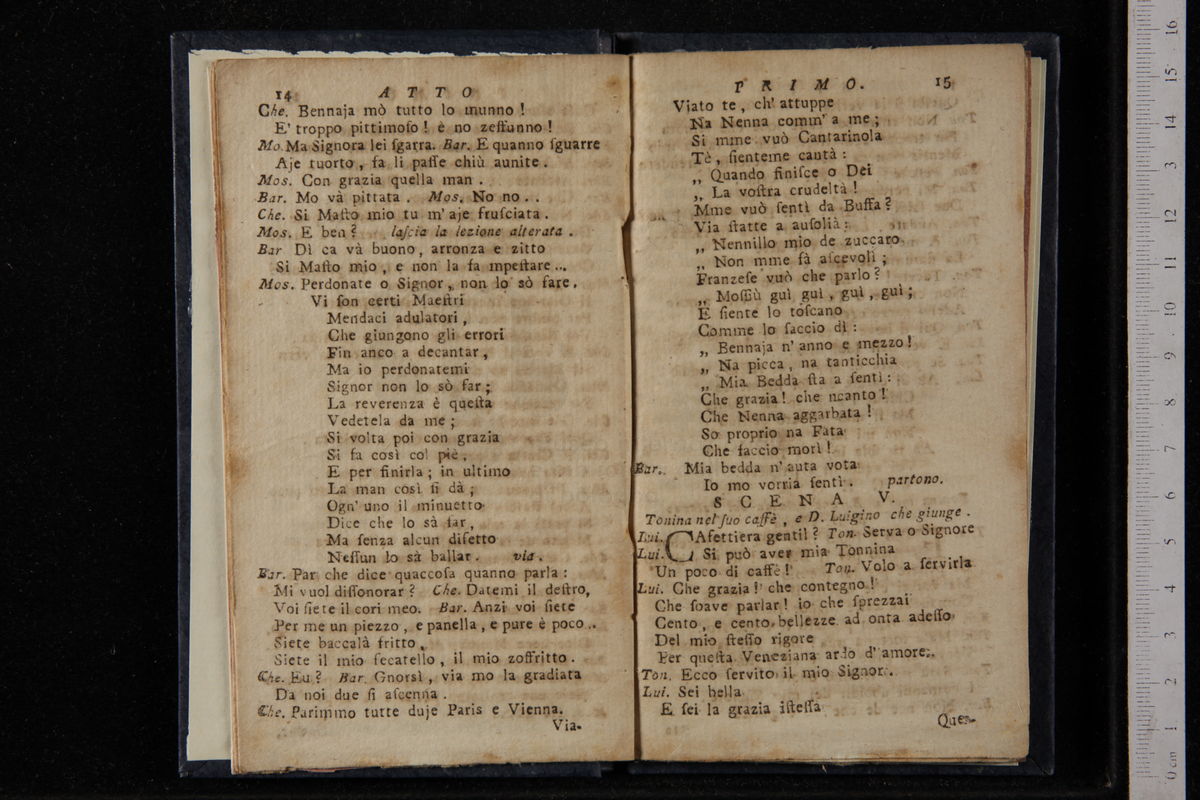 14 A T T O
Che. Bennaja mò tutto lo munno !
E' troppo pittimoſo ! e no zeffunno !
Mo. Ma Signora lei ſgarra. Bar. E quanno ſguarre
Aje tuorto , fa li paſſe chiù aunite .
Mos. Con grazia quella man .
Bar. Mo và pittata . Mos. No no . .
Che. Si Maſto mio tu m' aje fruſciata .
Mos. E ben ? laſcia la lezione alterata .
Bar Dì ca và buono , arronza e zitto
Si Maſto mio , e non la fa mpeſtare ...
Mos. Perdonate o Signor , non lo sò fare .
Vi ſon certi Maeſtri
Mendaci adulatori ,
Che giungono gli errori
Fin anco a decantar ,
Ma io perdonatemi
Signor non lo sò far ;
La reverenza è queſta
Vedetela da me ;
Si volta poi con grazia
Si fa così col piè ,
E per finirla ; in ultimo
La man così ſi dà ;
Ogn' uno il minuetto
Dice che lo sà far ,
Ma ſenza alcun difetto
Neſſun lo sà ballar . via .
Bar. Par che dice quaccoſa quanno parla :
Mi vuol diſſonorar ? Che. Datemi il deſtro,
Voi ſiete il cori meo. Bar. Anzi voi ſiete
Per me un piezzo , e panella , e pure è poco ..
Siete baccalà fritto ,
Siete il mio fecatello , il mio zoffritto .
Che. Eu ? Bar. Gnorsì , via mo la gradiata
Da noi due ſi aſcenna .
Che. Parimmo tutte duje Paris e Vienna.
Via-
P R I M O . 15
Viato te , ch' attuppe
Na Nenna comm' a me ;
Si mme vuò Cantarinola
Tè , ſienteme cantà :
„ Quando finiſce o Dei
„ La voſtra crudeltà !
Mme vuò ſentì da Buffa ?
Via ſtatte a auſolià :
„ Nennillo mio de zuccaro
„ Non mme fà aſcevolì ;
Franzeſe vuò che parlo ?
„ Moſſiù guì guì , guì , guì ;
E ſiente lo toſcano
Comme lo faccio dì :
„ Bennaja n' anno e mezzo !
„ Na picca , na tanticchia
„ Mia Bedda ſta a ſentì :
Che grazia ! che ncanto !
Che Nenna aggarbata !
So proprio na Fata
Che faccio morì !
Bar. Mia bedda n' auta vota
Io mo vorria ſentì . partono.
S C E N A V.
Tonina nel ſuo caffè , e D. Luigino che giunge .
Lui. CAfettiera gentil ? Ton. Serva o Signore
Lui. Si può aver mia Tonnina
Un poco di caffè ! Ton. Volo a ſervirla
Lui. Che grazia ! che contegno !
Che ſoave parlar ! io che ſprezzai
Cento , e cento bellezze ad onta adeſſo
Del mio ſteſſo rigore
Per queſta Veneziana ardo d' amore .
Ton. Ecco ſervito il mio Signor .
Lui. Sei bella
E ſei la grazia iſteſſa
Ques-
0 cm 1 2 3 4 5 6 7 8 9 10 11 12 13 14 15 16